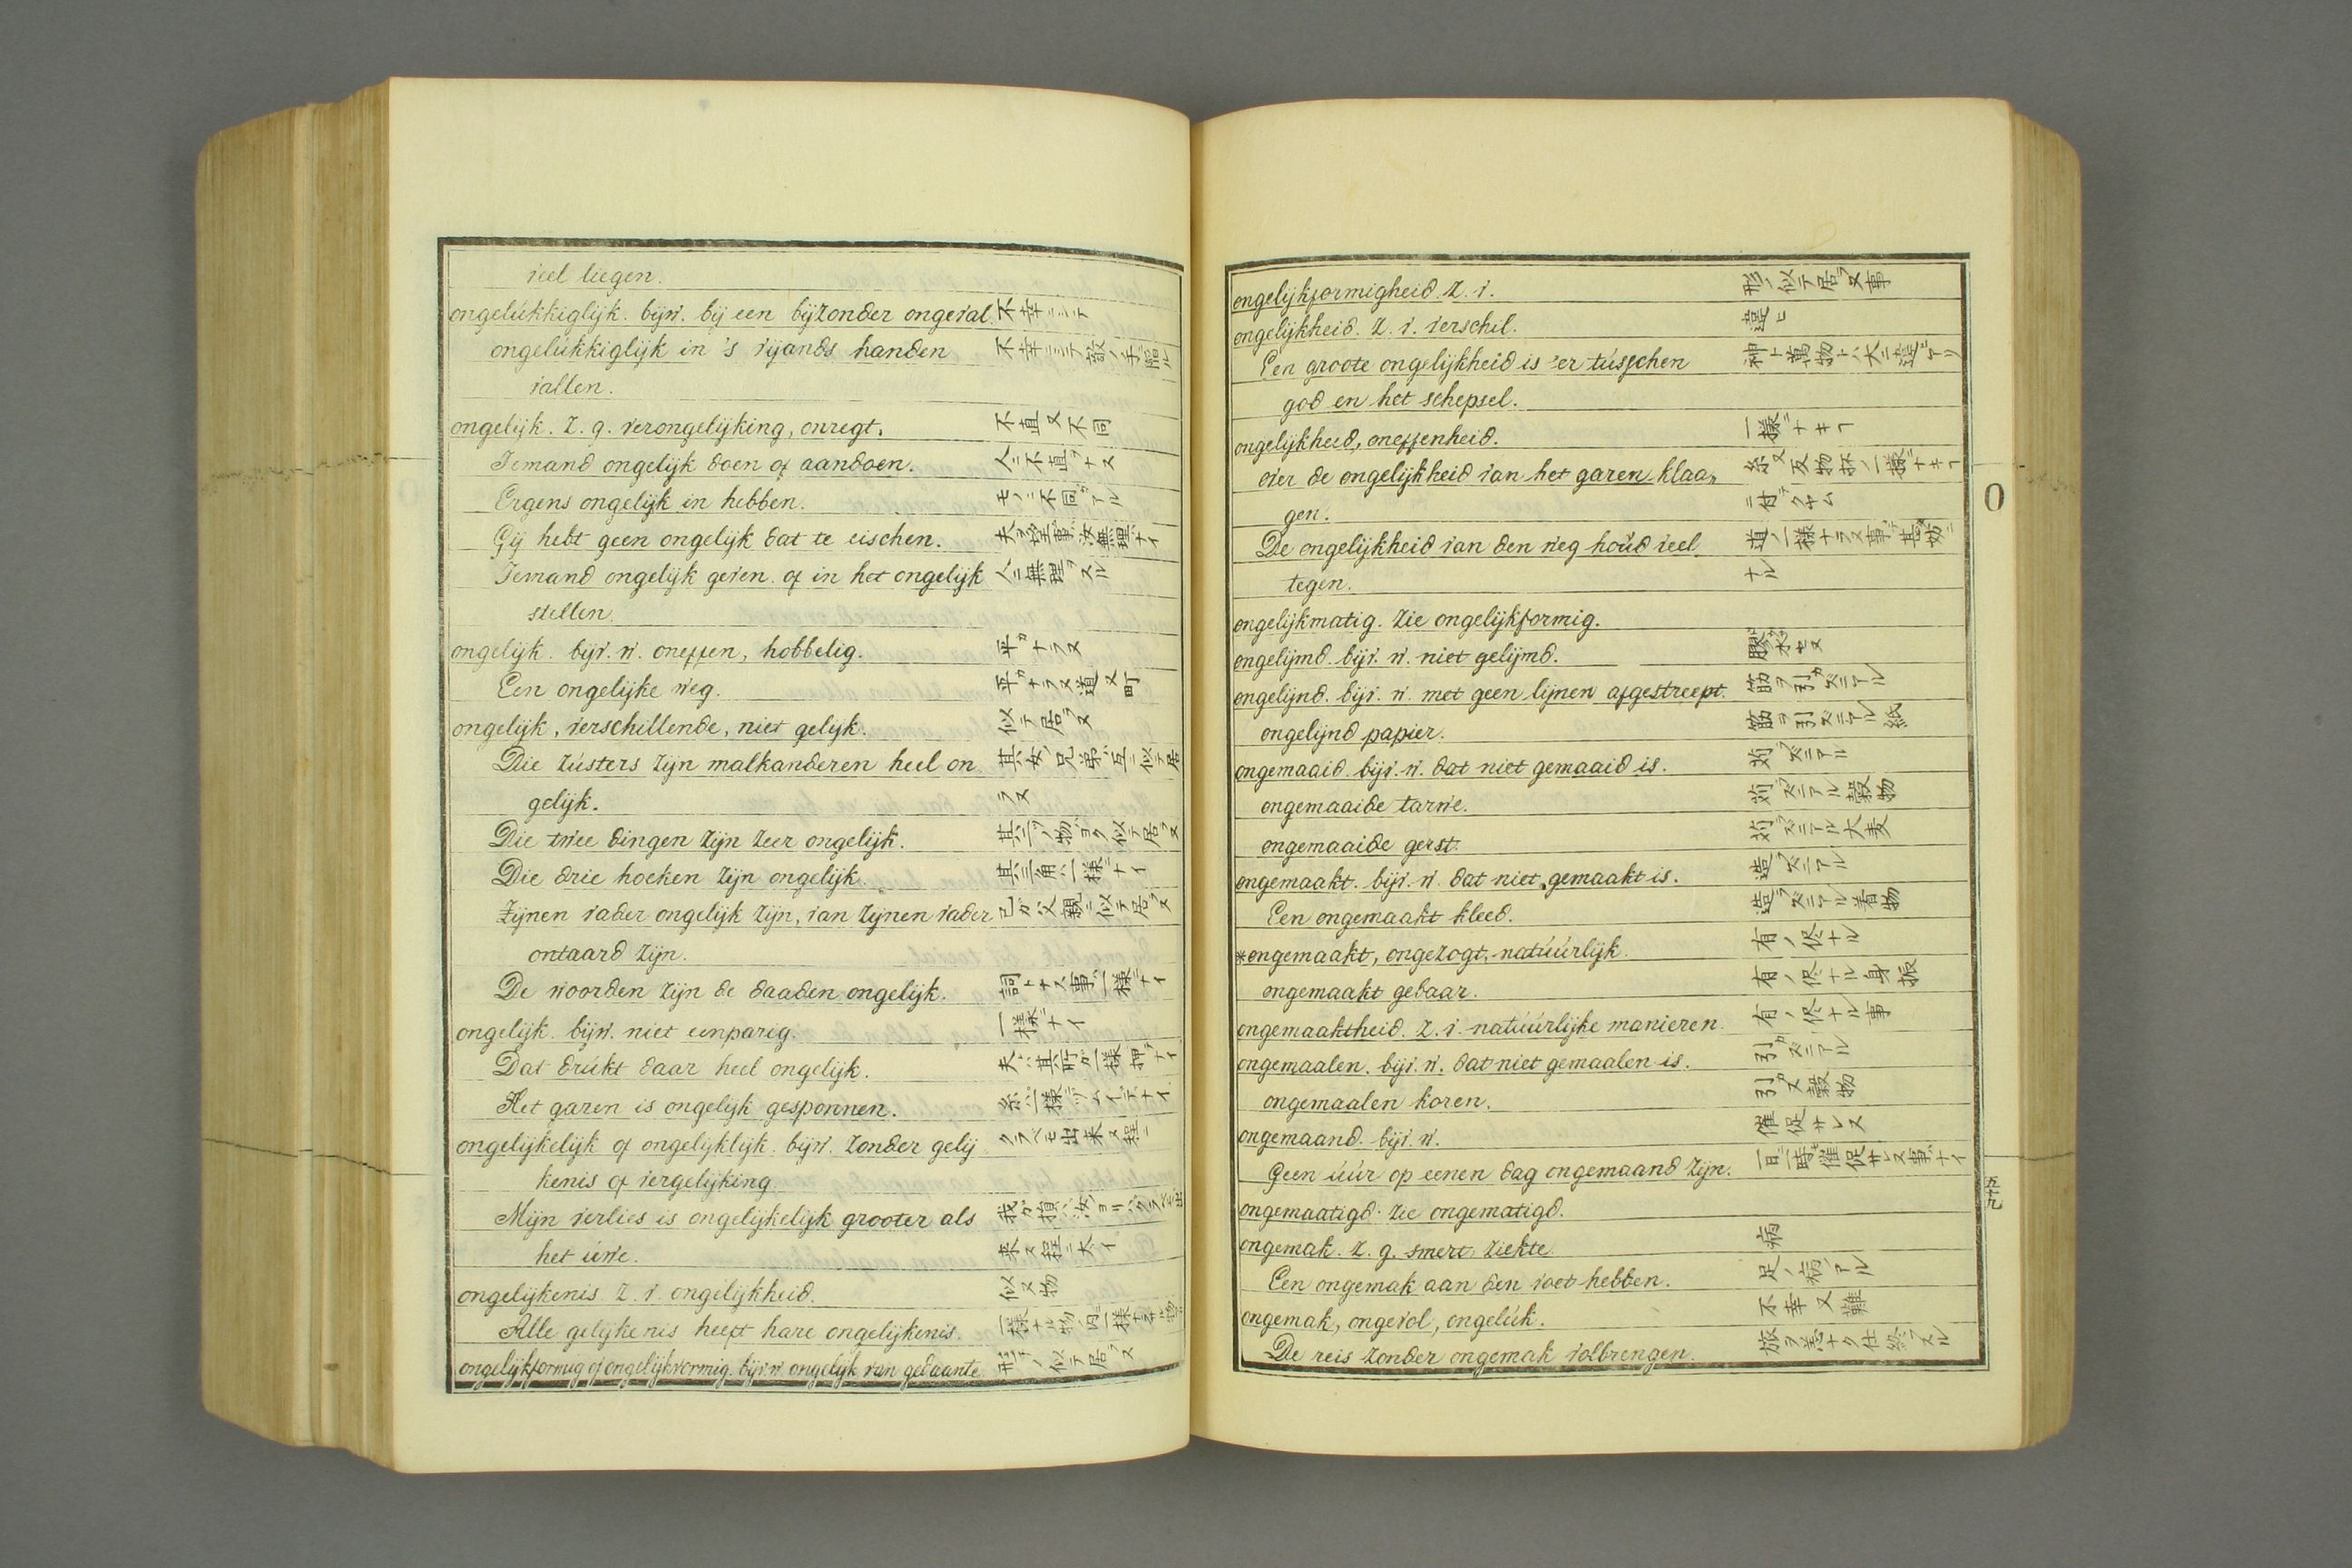 veel liegen.
ongelúkkiglijk. bijw. bij een bijzonder ongeval. 不幸ニシテ
ongelúkkiglijk in 's vijands handen 不幸ニシテ敵ノ手ニ陥ル
vallen.
ongelijk. z. g. verongelijking, onregt. 不直又不同
Iemand ongelijk doen of aandoen. 人ニ不直ヲナス
Ergens ongelijk in hebben. モノニ不同ガアル
Gij hebt geen ongelijk dat te eischen. 夫ヲ望ム事ハ汝無理デナイ
Iemand ongelijk geven. of in het ongelijk 人ニ無理ヲスル
stellen.
ongelijk. bijv. w. oneffen, hobbelig. 平カナラヌ
Een ongelijke weg. 平カナラヌ道又町
ongelijk, verschillende, niet gelijk. 似テ居ラヌ
Die zústers zijn malkanderen heel on 其女ノ兄弟ハ互ニ似テ居
gelijk. ラヌ
Die twee dingen zijn zeer ongelijk. 其二ツノ物ハヨク似テ居ラヌ
Die drie hoeken zijn ongelijk. 其三角ハ一様デナイ
Zijnen vader ongelijk zijn, van zijnen vader 己ガ父親ニ似テ居ラヌ
ontaard zijn.
De woorden zijn de daaden ongelijk. 詞トナス事ハ一様デナイ
ongelijk. bijw. niet eenparig. 一様デナイ
Dat drúkt daar heel ongelijk. 夫ハ其所ガ一様ニ押サナイ
Het garen is ongelijk gesponnen. 糸ガ一様ニツムイデナイ
ongelijkelijk of ongelijklijk. bijw. zonder gelij クラベモ出来ヌ程ニ
kenis of vergelijking.
Mijn verlies is ongelijkelijk grooter als 我ガ損ハ汝ノヨリハクラベモ出
het úwe. 来ヌ程ニ大イ
ongelijkenis. z. v. ongelijkheid. 似ヌ物
Alle gelijkenis heeft hare ongelijkenis. 一様ナル物ノ内ニ一様ナラヌ物ガ
ongelijkformig of ongelijkvormig. bijv. w. ongelijk van gedaante. 形チノ似テ居ラヌ
ongelijkformigheid. z. v. 形ノ似テ居ラヌ事
ongelijkheid. z. v. verschil. 違ヒ
Een groote ongelijkheid is 'er tússchen 神ト萬物トハ大ニ違ヒアリ
god en het schepsel.
ongelijkheid, oneffenheid. 一様デナキヿ
over de ongelijkheid van het garen klaa„ 糸又反物抔ノ一様デナキヿ
gen.
De ongelijkheid van den weg houd veel 道ノ一様ナラヌ事ガ甚妨ニ
tegen. ナル
ongelijkmatig. zie ongelijkformig.
ongelijmd. bijv. w. niet gelijmd. 膠水セヌ
ongelijnd. bijv. w. met geen lijnen afgestreept. 筋ヲ引カズニアル
ongelijnd papier. 筋ヲ引カズニアル紙
ongemaaid. bijv. w. dat niet gemaaid is. 苅ラズニアル
ongemaaide tarwe. 苅ラズニアル穀物
ongemaaide gerst. 苅ラズニアル大麦
ongemaakt. bijv. w. dat niet gemaakt is. 造ラズニアル
Een ongemaakt kleed. 造ラズニアル着物
*ongemaakt, ongezogt, natúúrlijk. 有ノ侭ナル
ongemaakt gebaar. 有ノ侭ナル身振
ongemaaktheid. z. v. natúúrlijke manieren. 有ノ侭ナル事
ongemaalen. bijv. w. dat niet gemaalen is. 引カズニアル
ongemaalen koren. 引カヌ穀物
ongemaand. bijv. w. 催促サレヌ
Geen úúr op eenen dag ongemaand zijn. 一日一時モ催促サレヌ事ハナイ
ongemaatigd. zie ongematigd.
ongemak. z. g. smert, ziekte. 病
Een ongemak aan den voet hebben. 足ノ病ガアル
ongemak, ongeval, ongelúk. 不幸又難
De reis zonder ongemak volbrengen. 旅ヲ恙ナク仕終フスル
O
五十九